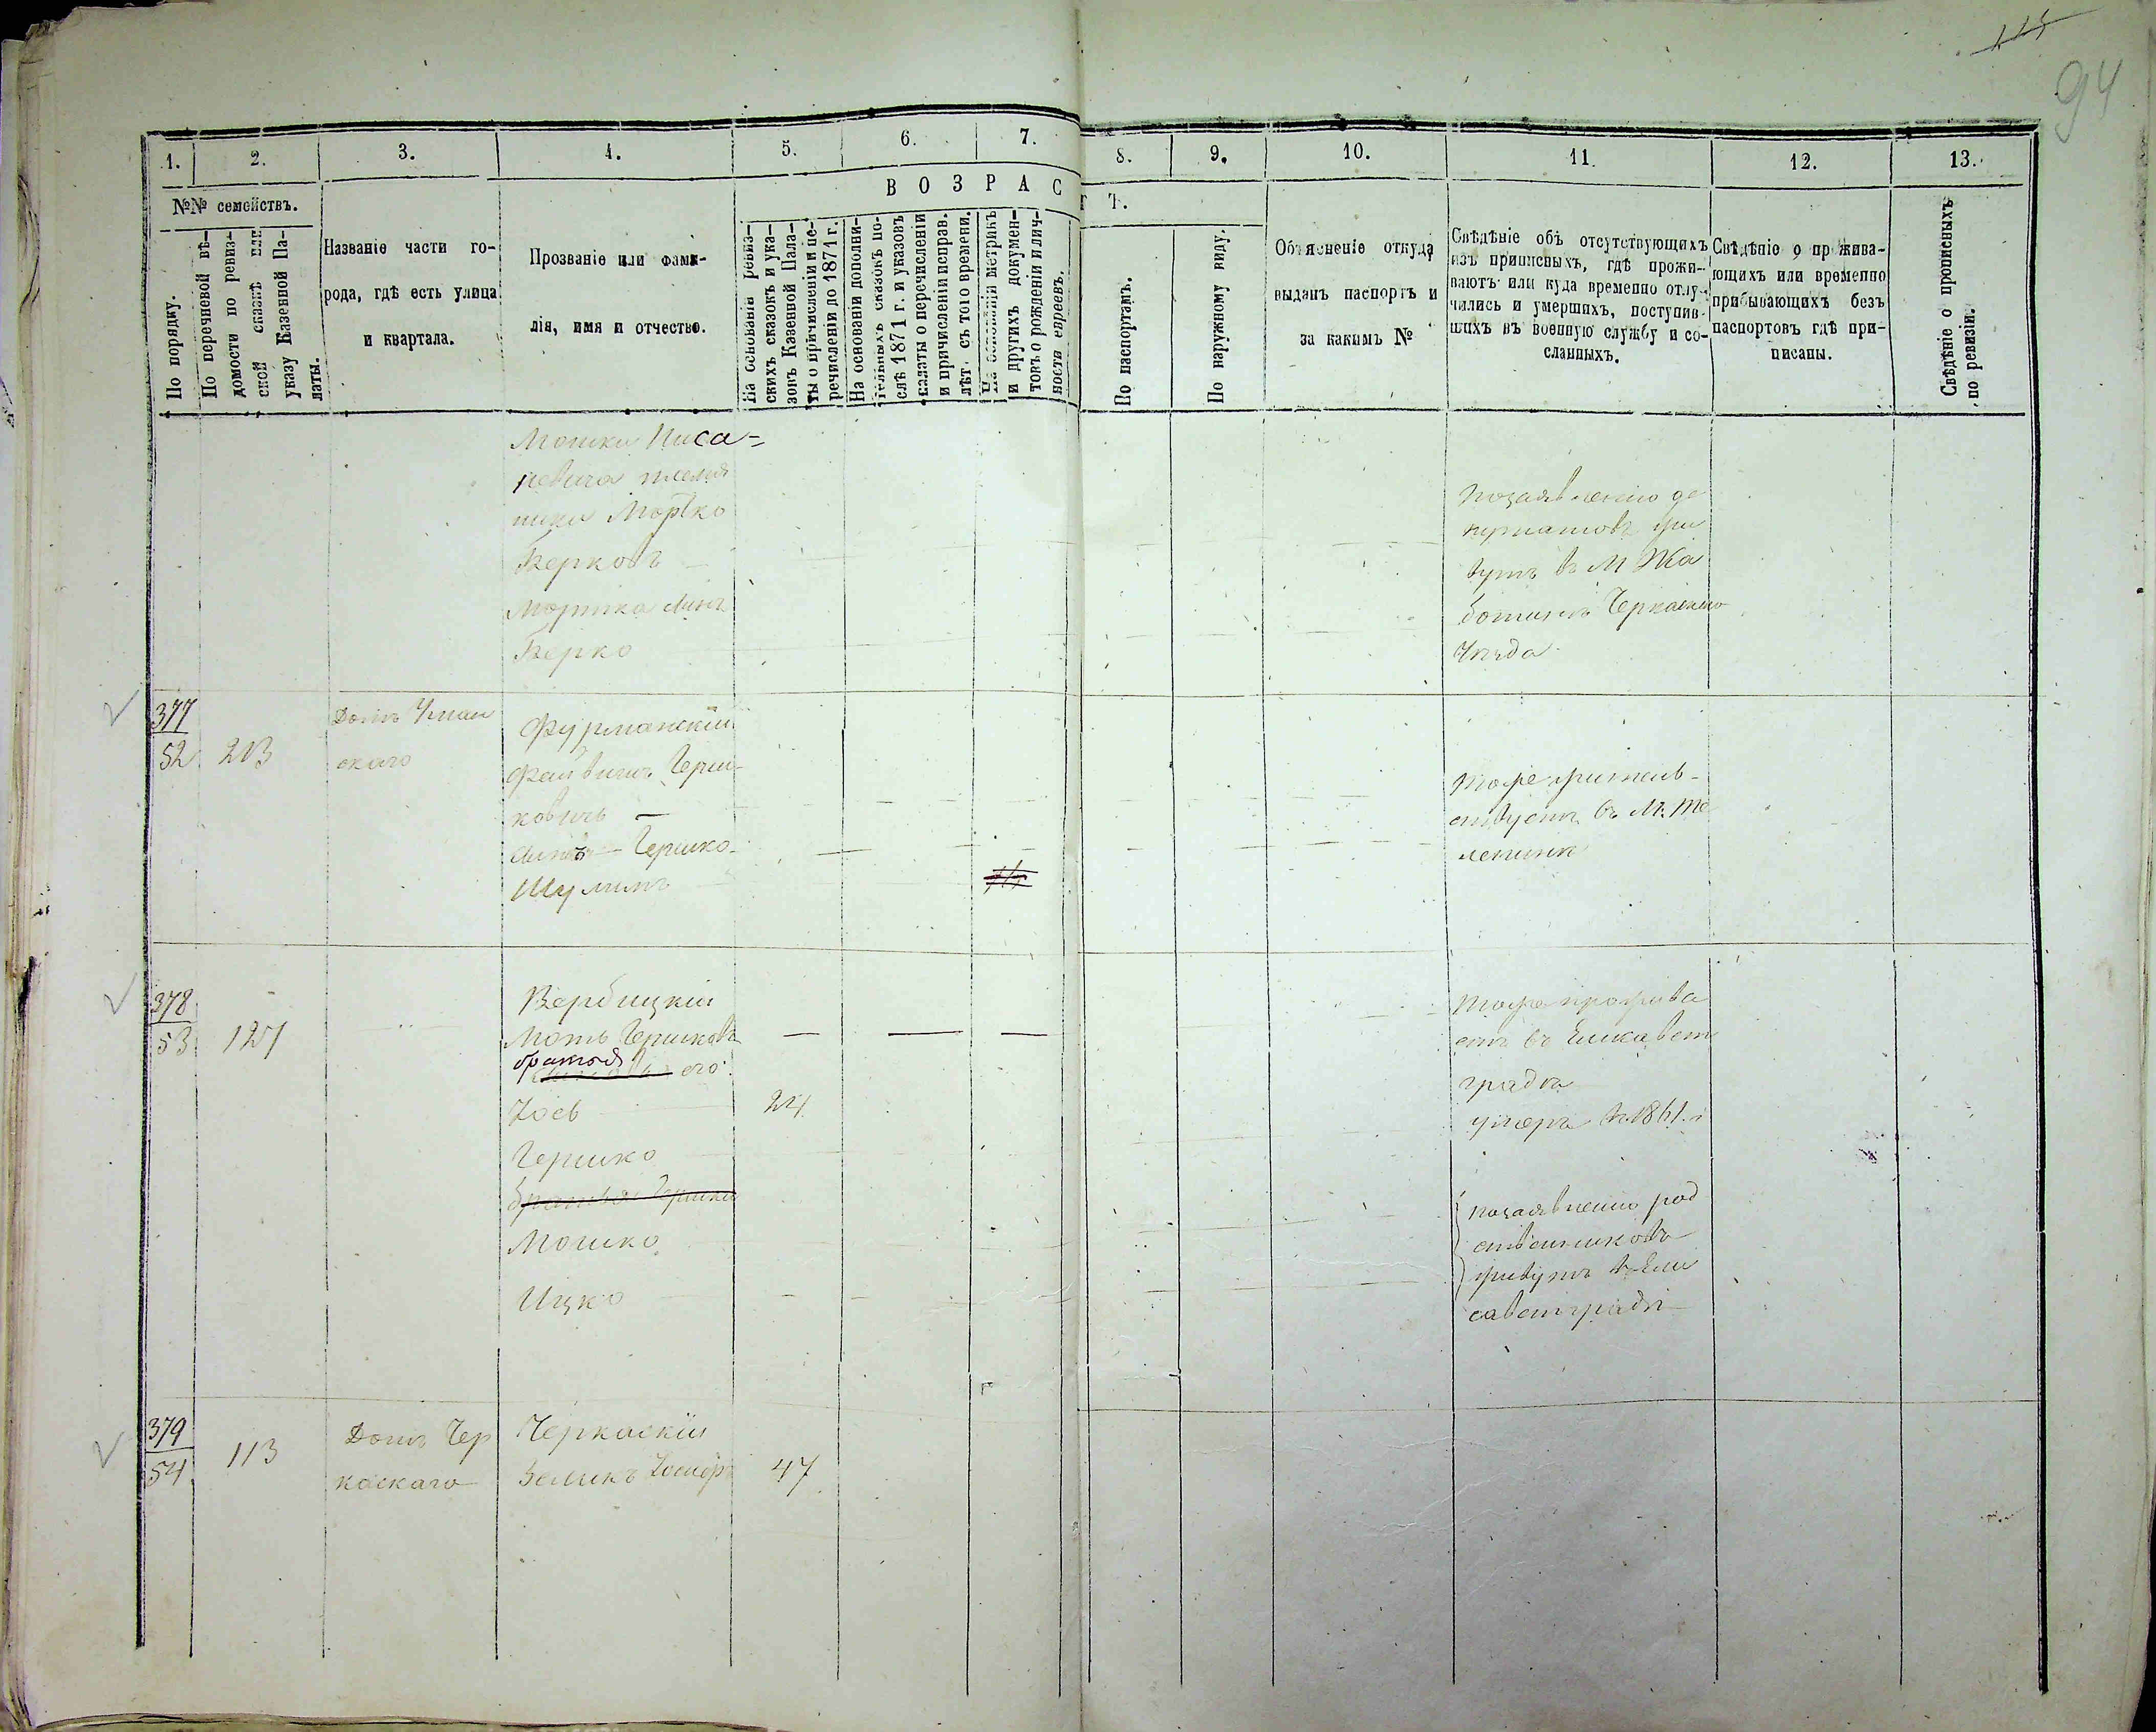 94
1. 2. 3. 4. 5. 6. 7. 8. 9. 10. 11. 12. 13.
№№ семействъ.
По порядку.
По перечневой вѣ-
домости по ревиз-
ской сказкѣ или
указу Казенной Па-
латы.
Названіе части го-
рода, гдѣ есть улица
и квартала.
Прозваніе или фами-
лія, имя и отчество.
ВОЗРАС
Т.
На основаніи ревиз-
скихъ сказокъ и ука-
зовъ Казенной Пала-
ты о причисленіи и пе-
речисленіи до 1871 г.
На основаніи дополни-
тельныхъ сказокъ по-
слѣ 1871 г. и указовъ
палаты о перечисленіи
и причисленіи исправ.
лѣт. съ того времени.
На основаніи метрикъ
и другихъ докумен-
товъ о рожденіи и лич-
ности евреевъ.
По паспортамъ.
По наружному виду.
Объясненіе откуда
выданъ паспортъ и
за какимъ №
Свѣдѣніе объ отсутствующихъ
изъ приписныхъ, гдѣ прожи-
ваютъ или куда временно отлу-
чились и умершихъ, поступив-
шихъ въ военную службу и со-
сланныхъ.
Свѣдѣніе о прожива-
ющихъ или временно
прибывающихъ безъ
паспортовъ гдѣ при-
писаны.
Свѣдѣніе о прописныхъ
по ревизіи.
Мошки Ниса-
невича племя
ника Мортко
Берковъ
Мортка сынъ
Берко
По заявленію де
путатовъ жи
вутъ въ М Жа
ботинѣ Черкаскаго
Уѣзда
377
52
213
Домъ Уман
скаго
Фурманскій
Файвишъ Герш-
ковичъ
сынъ Гершко
Шулимъ
Тоже житель-
ствуетъ въ М. Те
лепинѣ
378
53
127
Вербицкій
Моть Гершковъ
братья его
Іось
24
Гершко
братья Гершки
Мошко
Ицко
Тоже прожива
етъ въ Елисавет
градѣ
умеръ въ 1861 г
по заявленію род
ственниковъ
живутъ въ Ели
саветградѣ
379
54
113
Домъ Чер
каскаго
Черкаскій
Зеликъ
47